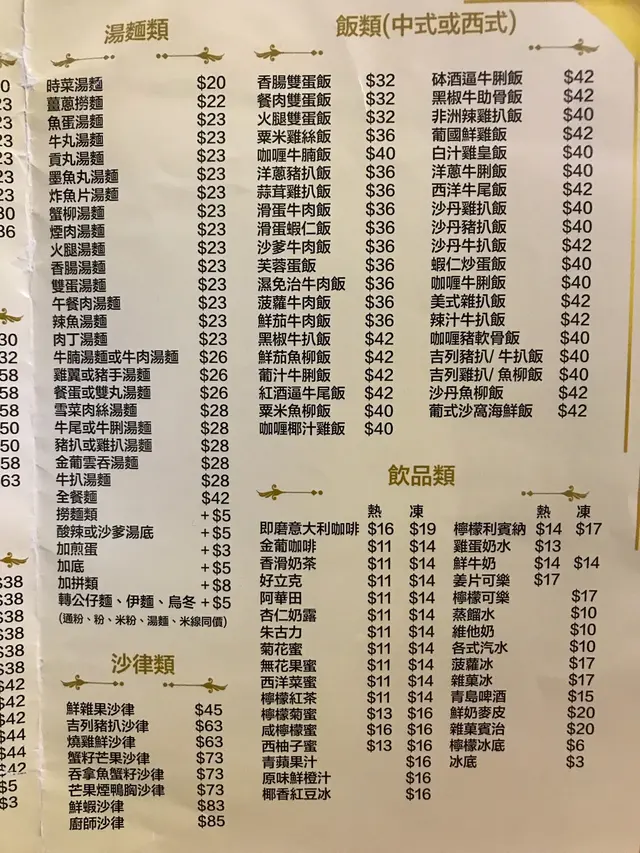 湯麵類
時菜湯麵 $20
薑蔥撈麵 $22
魚蛋湯麵 $23
牛丸湯麵 $23
貢丸湯麵 $23
墨魚丸湯麵 $23
炸魚片湯麵 $23
蟹柳湯麵 $23
煙肉湯麵 $23
火腿湯麵 $23
香腸湯麵 $23
雙蛋湯麵 $23
午餐肉湯麵 $23
辣魚湯麵 $23
肉丁湯麵 $23
牛腩湯麵或牛肉湯麵 $26
雞翼或豬手湯麵 $26
餐蛋或雙丸湯麵 $26
雪菜肉絲湯麵 $28
牛尾或牛脷湯麵 $28
豬扒或雞扒湯麵 $28
金葡雲吞湯麵 $28
牛扒湯麵 $28
全餐麵 $42
撈麵類 +$5
酸辣或沙爹湯底 +$5
加煎蛋 +$3
加底 +$5
加拼類 +$8
轉公仔麵、伊麵、烏冬 +$5
(通粉、粉、米粉、湯麵、米線同價)
沙律類
鮮雜果沙律 $45
吉列豬扒沙律 $63
燒雞鮮沙律 $63
蟹籽芒果沙律 $73
吞拿魚蟹籽沙律 $73
芒果煙鴨胸沙律 $73
鮮蝦沙律 $83
廚師沙律 $85
飯類(中式或西式)
香腸雙蛋飯 $32
餐肉雙蛋飯 $32
火腿雙蛋飯 $32
粟米雞絲飯 $36
咖喱牛腩飯 $40
洋蔥豬扒飯 $36
蒜茸雞扒飯 $36
滑蛋牛肉飯 $36
滑蛋蝦仁飯 $36
沙爹牛肉飯 $36
芙蓉蛋飯 $36
濕免治牛肉飯 $36
菠蘿牛肉飯 $36
鮮茄牛肉飯 $36
黑椒牛扒飯 $42
鮮茄魚柳飯 $42
葡汁牛脷飯 $42
紅酒逼牛尾飯 $42
粟米魚柳飯 $40
咖喱椰汁雞飯 $40
砵酒逼牛脷飯 $42
黑椒牛助骨飯 $42
非洲辣雞扒飯 $40
葡國鮮雞飯 $40
白汁雞皇飯 $40
洋蔥牛脷飯 $40
西洋牛尾飯 $42
沙丹雞扒飯 $40
沙丹豬扒飯 $40
沙丹牛扒飯 $42
蝦仁炒蛋飯 $40
咖喱牛脷飯 $40
美式雜扒飯 $42
辣汁牛扒飯 $42
咖喱豬軟骨飯 $40
吉列豬扒/ 牛扒飯 $40
吉列雞扒/ 魚柳飯 $40
沙丹魚柳飯 $42
葡式沙窩海鮮飯 $42
飲品類
熱 凍
即磨意大利咖啡 $16 $19
金葡咖啡 $11 $14
香滑奶茶 $11 $14
好立克 $11 $14
阿華田 $11 $14
杏仁奶露 $11 $14
朱古力 $11 $14
菊花蜜 $11 $14
無花果蜜 $11 $14
西洋菜蜜 $11 $14
檸檬紅茶 $11 $14
檸檬菊蜜 $13 $16
咸檸檬蜜 $16 $16
西柚子蜜 $13 $16
青蘋果汁 $16
原味鮮橙汁 $16
椰香紅豆冰 $16
熱 凍
檸檬利賓納 $14 $17
雞蛋奶水 $13
鮮牛奶 $14 $14
姜片可樂 $17
檸檬可樂 $17
蒸餾水 $10
維他奶 $10
各式汽水 $10
菠蘿冰 $17
雜菓冰 $17
青島啤酒 $15
鮮奶麥皮 $20
雜菓賓治 $20
檸檬冰底 $6
冰底 $3